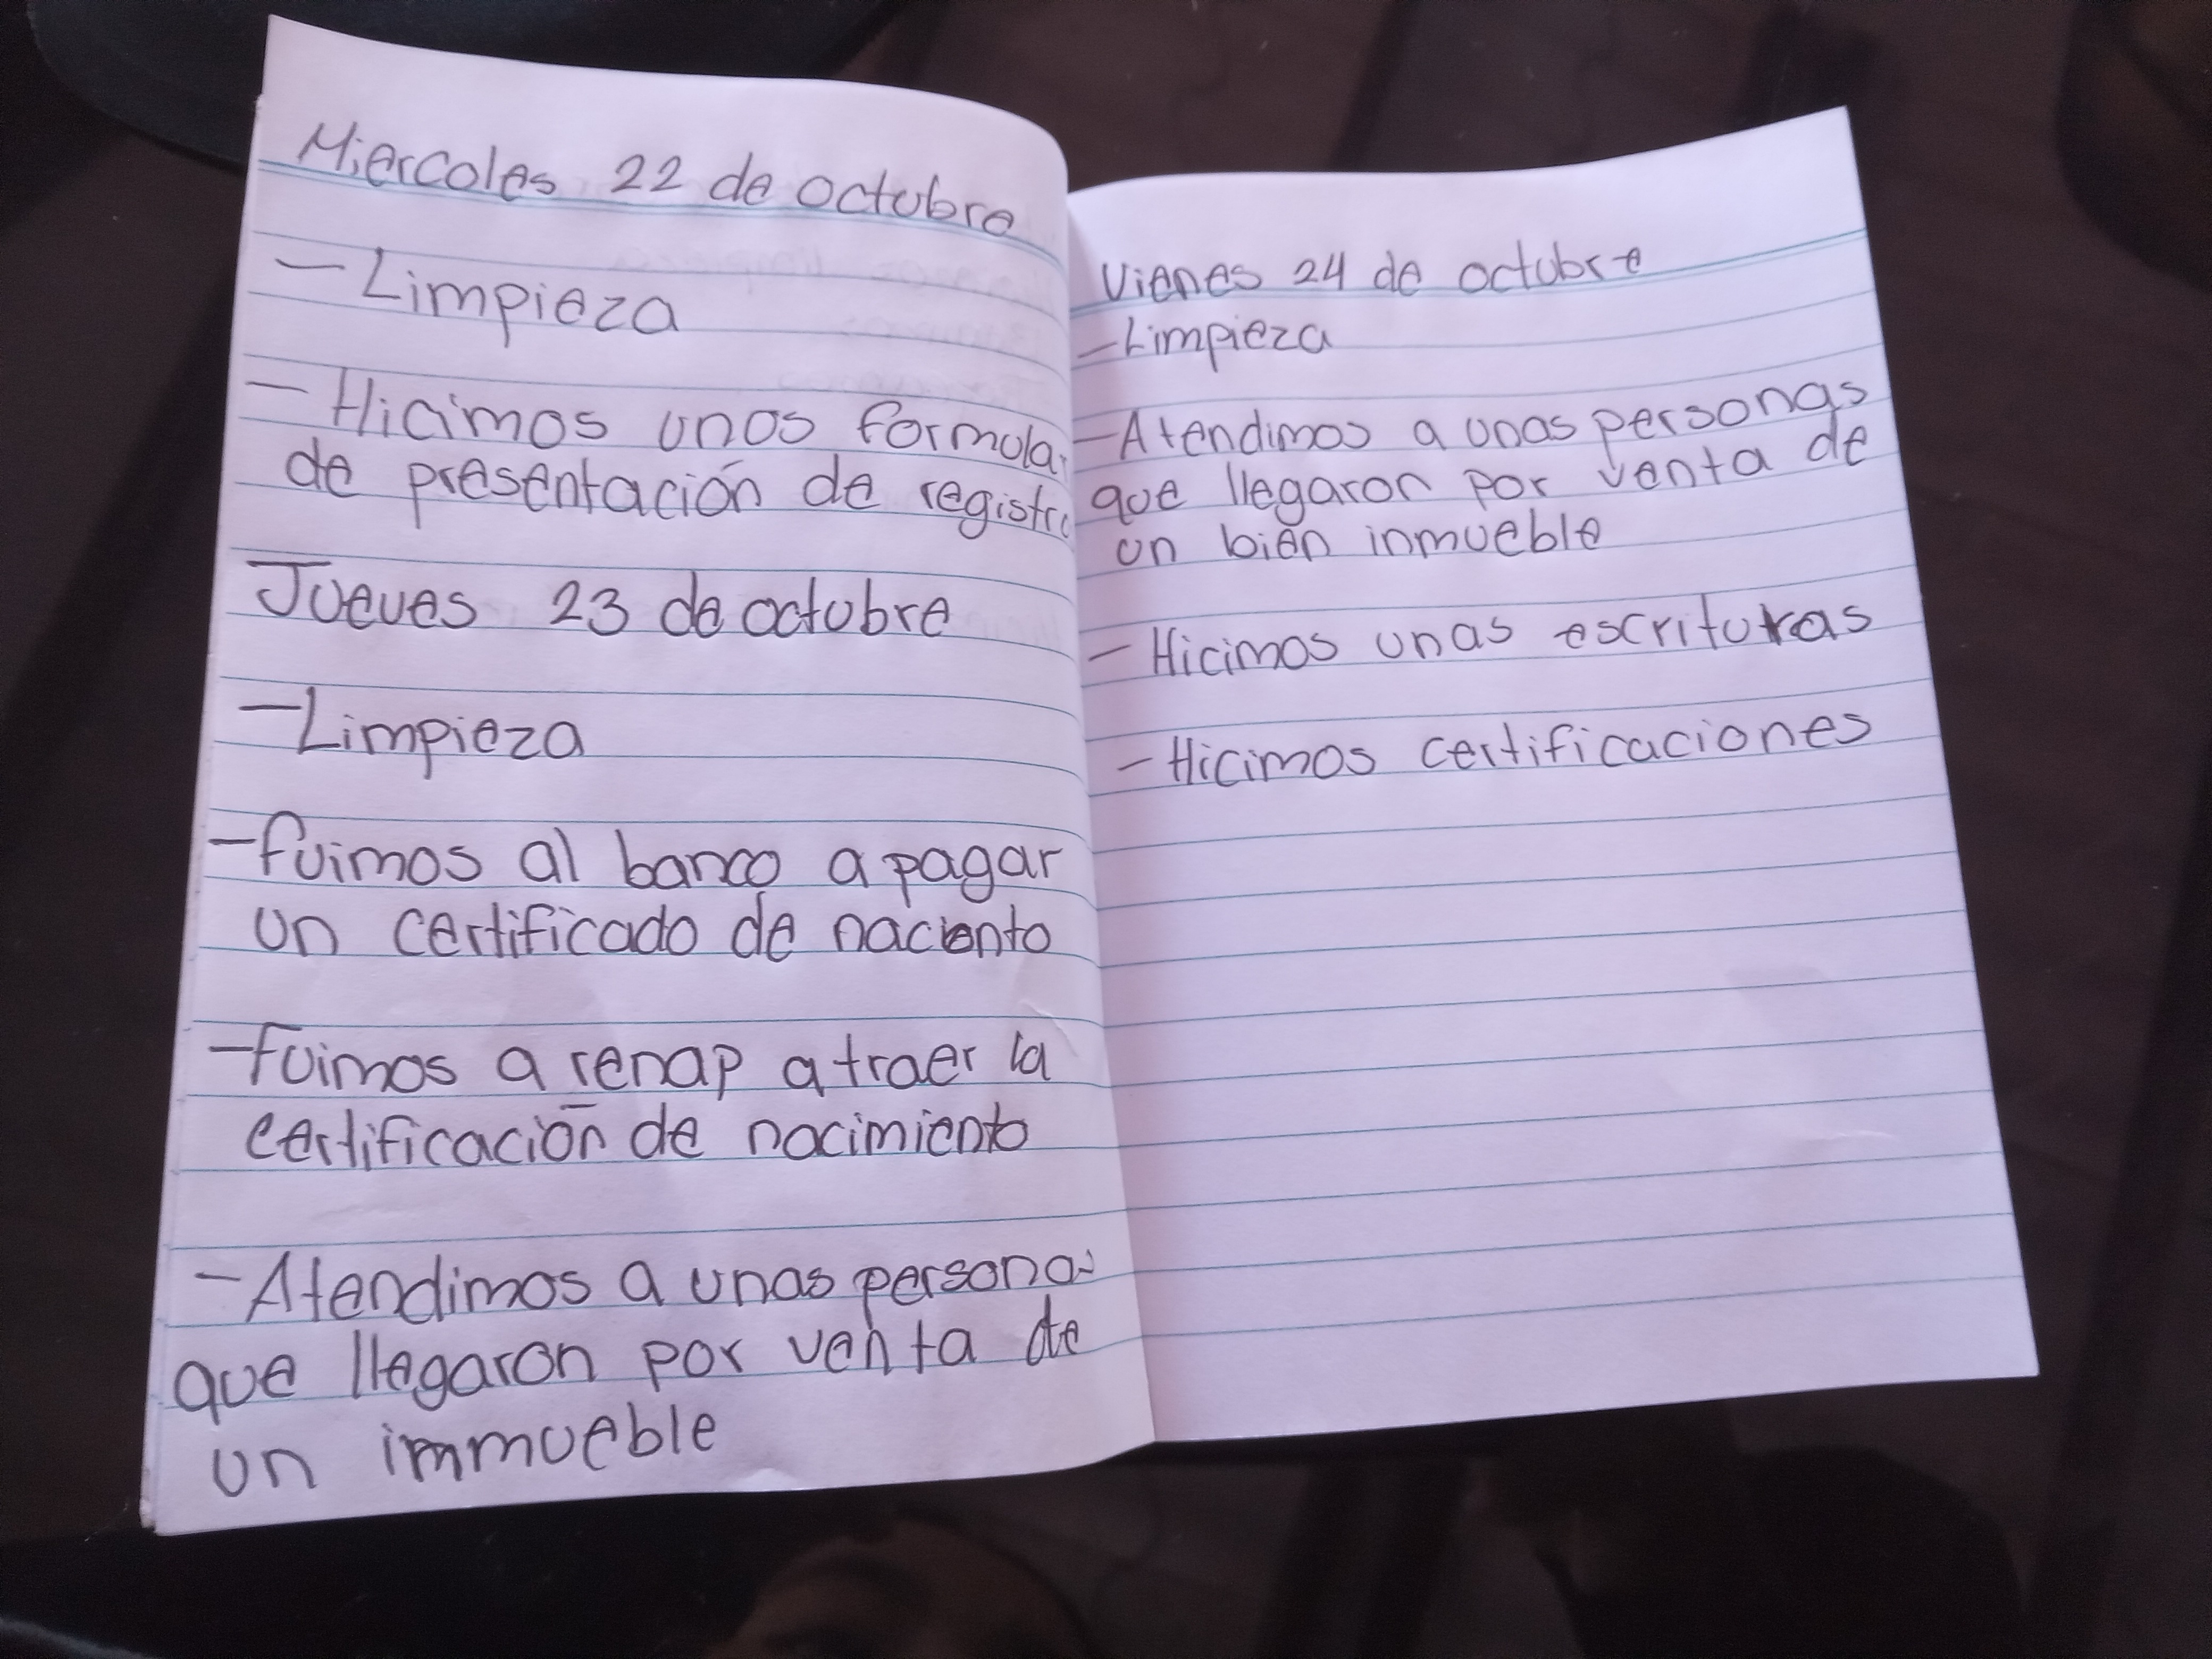 Miercoles 22 de octubre
- Limpieza
- Hicimos unos formula
de presentación de registro
Jueves 23 de octubre
- Limpieza
- fuimos al banco a pagar
un certificado de naciento
- fuimos a renap a traer la
certificación de nacimiento
- Atendimos a unas personas
que llegaron por venta de
un immueble
Vienes 24 de octubre
- Limpieza
- Atendimos a unas personas
que llegaron por venta de
un bien inmueble
- Hicimos unas escrituras
- Hicimos certificaciones